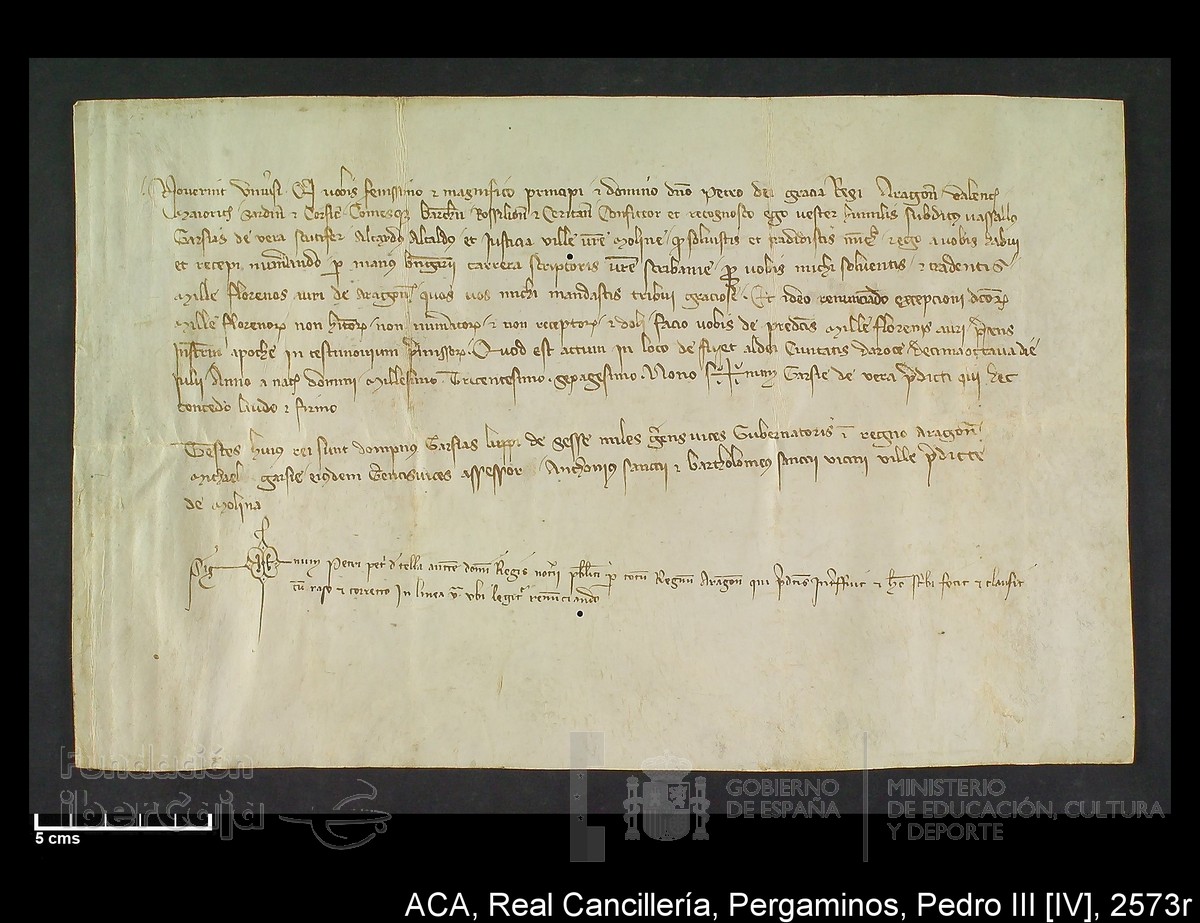 Noverint Univsi Q vobis senissimo & magnifico principi & domino dno Petro dei gracia Regi Aragon Valenc
Maioric Sardin & Corsic Comesque Barchn Rossilion & Ceritan Confiteor et recognosco ego vester humilis subditus vassallus
Garsias de vera scutifer Alcaldo et Justicia ville vre Moline q solvistis et tradidistis mich et ego a vobis habui
et recepi numerando p manus bngarii carrera scriptoris vre scribanie p vobis michi solventis & tradentis
Mille florenos auri de Aragon quos vos michi mandastis tribui graciose Et ideo renunciando excepcioni dcor
Mille florenor non hitor non numerator & non receptor & doli facio vobis de predcis Mille florenis auri psens
Instrm apoche in testimonium pmissor Quod est actum in loco de aldei Civitatis daroce decima octava die
Julii Anno a nat domini Millesimo Tricentesimo Septuagesimo Nono Sig+num Garsie de vera pdicti qui hec
concedo laudo & firmo
Testes huius rei sunt dompnus Garsias lupp de Sesse miles gerens vices Gubernatoris i regno Aragon
Michael garsie eiusdem Gerentisvices assessor Anthonius Sancii & bartholomeus sancii vicini ville pdicte
de Molina
Sig num Petri pet d tella auctte domi Regis notarii publici p totum Regnum Aragon qui pdcis Interfuit & hec scribi fecit & clausit
cu raso & correcto In linea v ubi legit renunciando
Fundación
iberCaja
GOBIERNO
DE ESPAÑA
MINISTERIO
DE EDUCACIÓN, CULTURA
Y DEPORTE
5 cms
ACA, Real Cancillería, Pergaminos, Pedro III [IV], 2573r